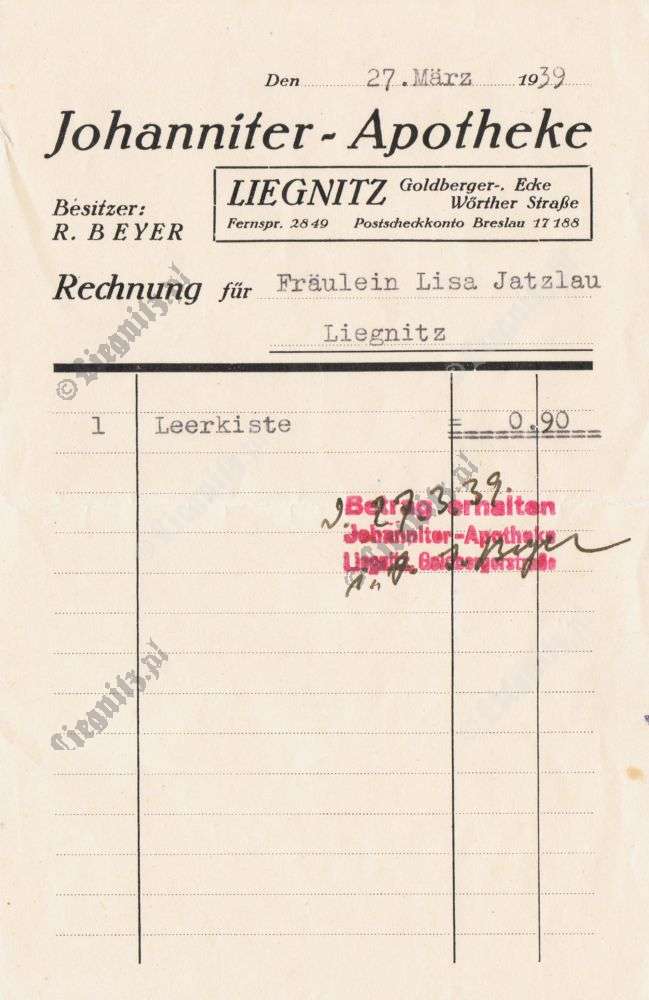 Den 27.März 1939
Johanniter - Apotheke
Besitzer:
R. BEYER
LIEGNITZ
Goldberger-, Ecke
Wörther Straße
Fernspr. 2849 Postscheckkonto Breslau 17188
Rechnung für Fräulein Lisa Jatzlau
Liegnitz
1 Leerkiste = 0.90
27.3.39.
Betrag erhalten
Johanniter-Apotheke
Liegnitz, Goldbergerstraße
Beyer
© Liegnitz.pl
Liegnitz.pl